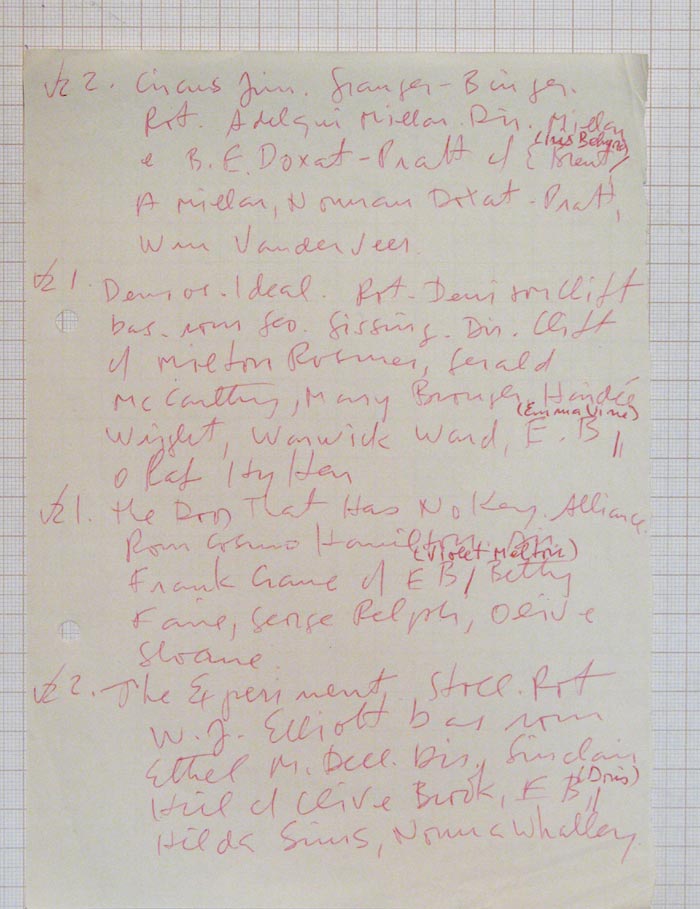 √22. Circus Jim. Granger-Binger.
Rot. Adelqui Millar. Dir. Millar
(Iris Belgrave)
e B.E. Doxat-Pratt cf (Brent,
A Millar, Norman Doxat-Pratt,
Wm Vanderveer.
√21. Demos. Ideal. Rot. Denison Clift
bas. rom Geo. Gissing. Dir. Clift
cf Milton Rosmer, Gerald
McCarthy, Mary Brough, Haidée
(Emma Vine)
Wright, Warwick Ward, E.B,
o Rat
√21. The Door That Has No Key. Alliance.
Rom Cosmo Hamilton. Dir.
(Violet Melton)
Frank Crane cf EB, Betty
Faire, George Relph, Olive
Sloane
√22. The Experiment. Stoll. Rot
W.J. Elliott bas rom
Ethel M. Dell. Dir. Sinclair
(Doris)
Hill cf Clive Brook, EB,
Hilda Sims, Norma Whalley.